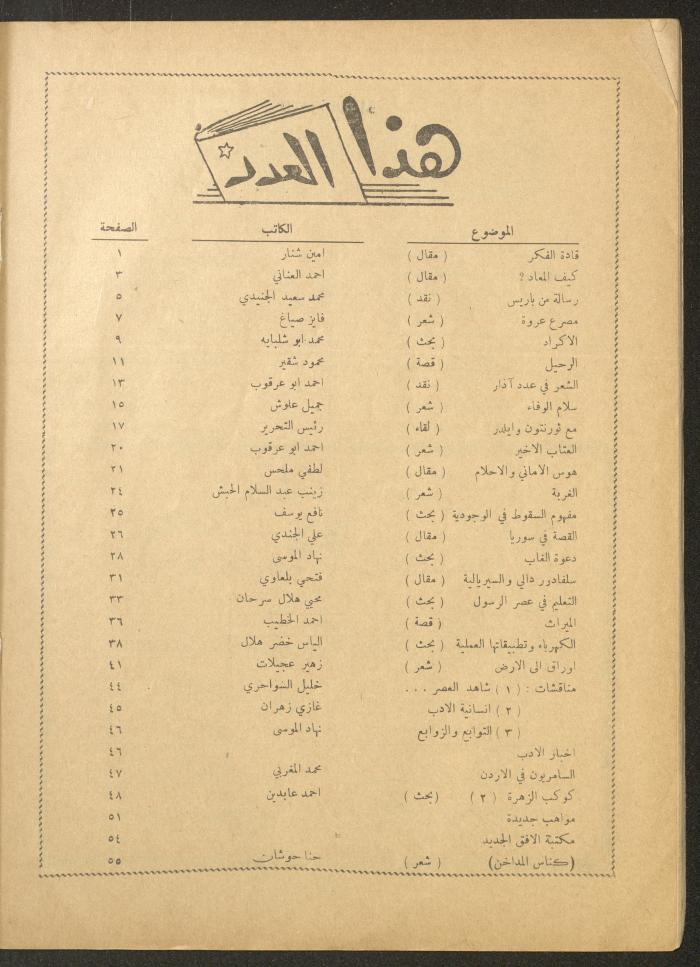 هذا العدد
الموضوع الكاتب الصفحة
قادة الفكر ( مقال ) امين شنار ١
كيف المعاد ؟ ( مقال ) احمد العناني ٣
رسالة من باريس ( نقد ) محمد سعيد الجنيدي ٥
مصرع عروة ( شعر ) فايز صياغ ٧
الاكراد ( بحث ) محمد ابو شلبايه ٩
الرحيل ( قصة ) محمود شقير ١١
الشعر في عدد آذار ( نقد ) احمد ابو عرقوب ١٣
سلام الوفاء ( شعر ) جميل علوش ١٥
مع ثورنتون وايلدر ( لقاء ) رئيس التحرير ١٧
العتاب الاخير ( شعر ) احمد ابو عرقوب ٢٠
هوس الاماني والاحلام ( مقال ) لطفي ملحس ٢١
الغربة ( شعر ) زينب عبد السلام الحبش ٢٤
مفهوم السقوط في الوجودية ( بحث ) نافع يوسف ٢٥
القصة في سوريا ( مقال ) علي الجندي ٢٦
دعوة الغاب ( بحث ) نهاد الموسى ٢٨
سلفادور دالي والسيريالية ( مقال ) فتحي بلعاوي ٣١
التعليم في عصر الرسول ( بحث ) محيي هلال سرحان ٣٣
الميراث ( قصة ) احمد الخطيب ٣٦
الكهرباء وتطبيقاتها العملية ( بحث ) الياس خضر هلال ٣٨
اوراق الى الارض ( شعر ) زهير عجيلات ٤١
مناقشات : ( ١ ) شاهد العصر ... خليل السواحري ٤٤
( ٢ ) انسانية الادب غازي زهران ٤٥
( ٣ ) التوابع والزوابع نهاد الموسى ٤٦
اخبار الادب ٤٦
السامريون في الاردن محمد المغربي ٤٧
كوكب الزهرة ( ٢ ) (بحث ) احمد عابدين ٤٨
مواهب جديدة ٥١
مكتبة الافق الجديد ٥٤
(كناس المداخن) ( شعر ) حنا حوشان ٥٥